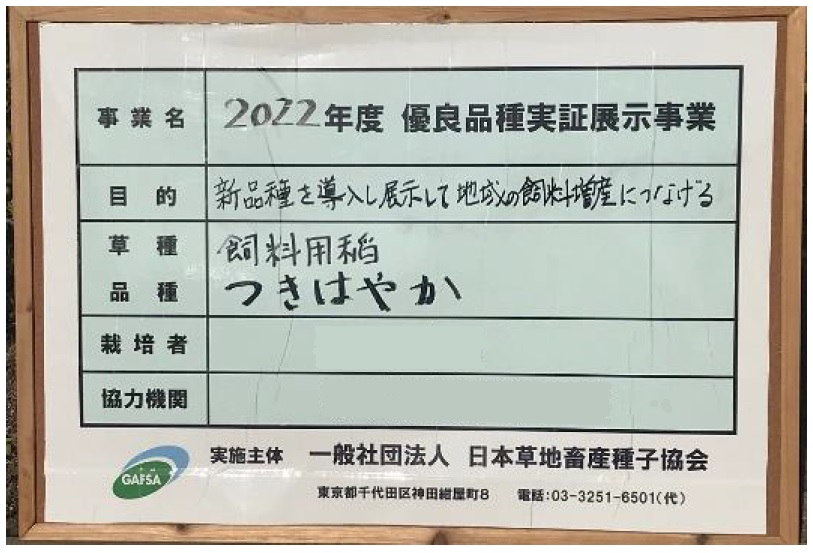 事業名 2022年度 優良品種実証展示事業
目的 新品種を導入し展示して地域の飼料増産につなげる
草種 飼料用稲
品種 つきはやか
栽培者
協力機関
GAFSA 実施主体 一般社団法人 日本草地畜産種子協会
東京都千代田区神田紺屋町8 電話:03-3251-6501(代)